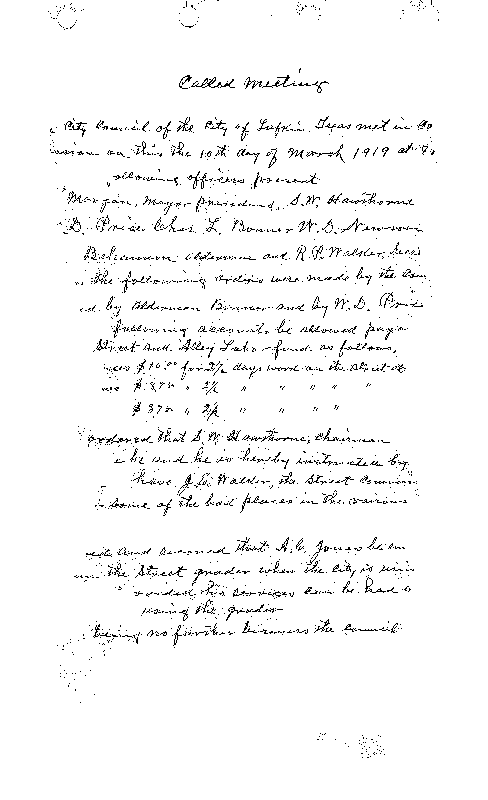 Called Meeting
City Council of the City of Lufkin Texas met in Co
on this the 10th day of March 1919 at
ollowing officers present
Morgan, Mayor presided, S.W. Hawthorne
D. Price Chas. L. Bonner W.D. Newsom
alderman and R.P. Walder, Secy
the following orders were made by the Coun
ed by Alderman Bonner and by W.D. Price
following accounts be allowed pay
Street and Alley Labor fund as follows,
$10.00 for 2 1/2 days work on the street
$3.75 " 2 1/2 " " " " "
$3.75 " 2 1/2 " " " "
ordered that S.W. Hawthorne, Chairman
he and he is hereby instructed by
have J.D. Walder, the Street Commis
some of the bad places in the various
and second that A.C. Jones be em
the Street grader when the City is
his services can be had
using the grader
being no further business the council